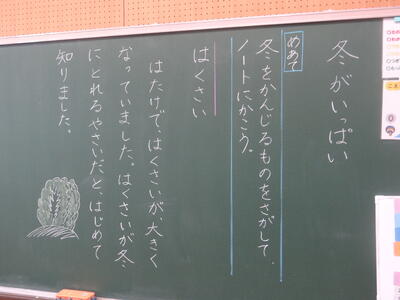 冬がいっぱい
めあて
冬をかんじるものをさがして、
ノートにかこう。
はくさい
はたけで、はくさいが、大きく
なっていました。はくさいが冬
にとれるやさいだと、はじめて
知りました。